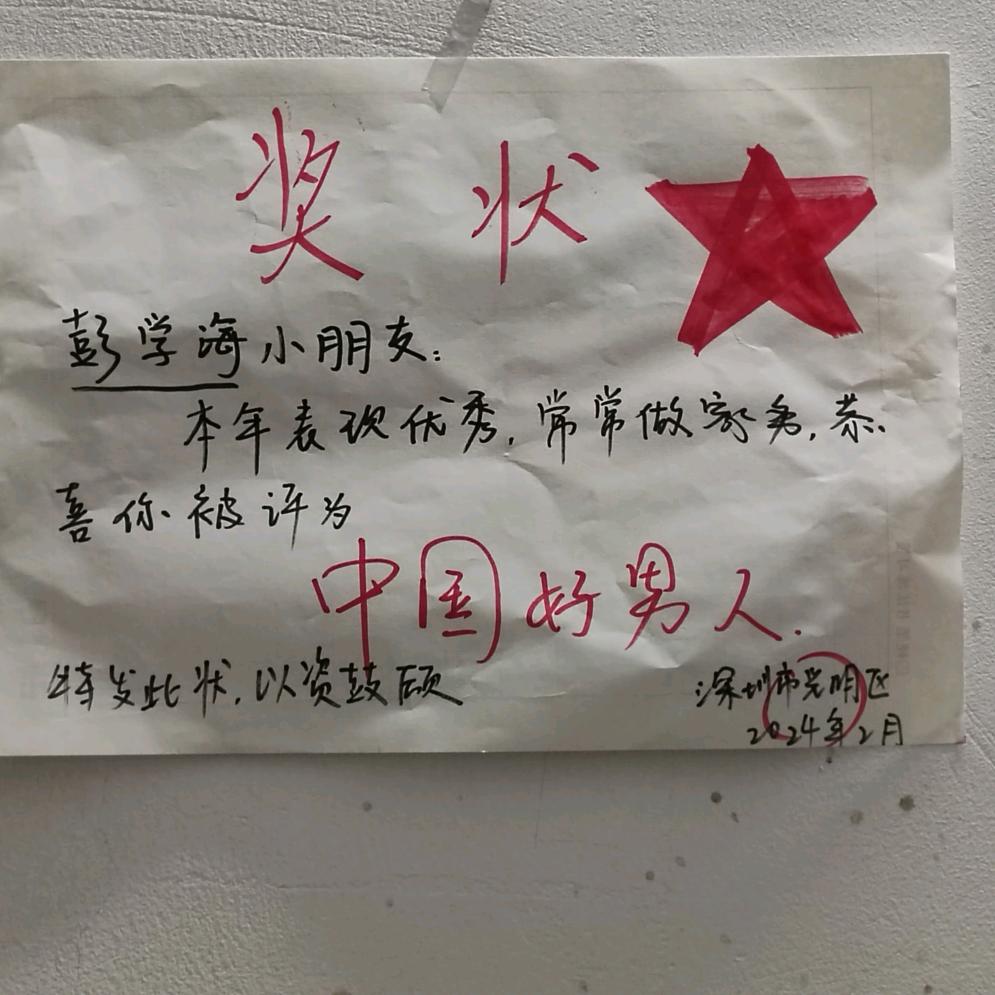 奖状
彭学海小朋友：
本年表现优秀，常常做家务，恭
喜你被评为
中国好男人.
特发此状，以资鼓励
深圳市光明区
2024年2月